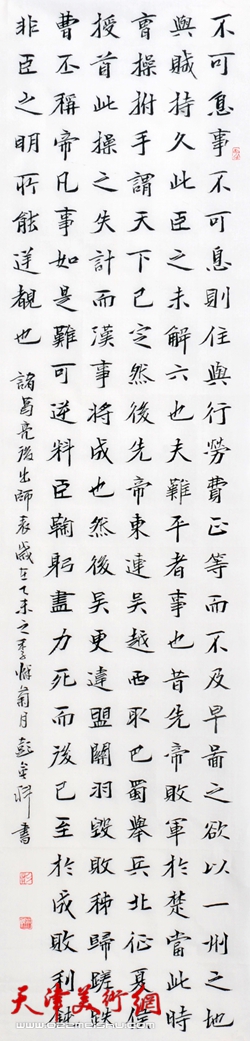 不可息事不可息則住與行勞費正等而不及早圖之欲以一州之地
與賊持久此臣之未解六也夫難平者事也昔先帝敗軍於楚當此時
曹操拊手謂天下已定然後先帝東連吳越西取巴蜀舉兵北征夏侯
授首此操之失計而漢事將成也然後吳更違盟關羽毀敗秭歸蹉跌
曹丕稱帝凡事如是難可逆料臣鞠躬盡力死而後已至於成敗利鈍
非臣之明所能逆覩也 諸葛亮後出師表歲在乙未之季秋菊月彭書
天津美術網